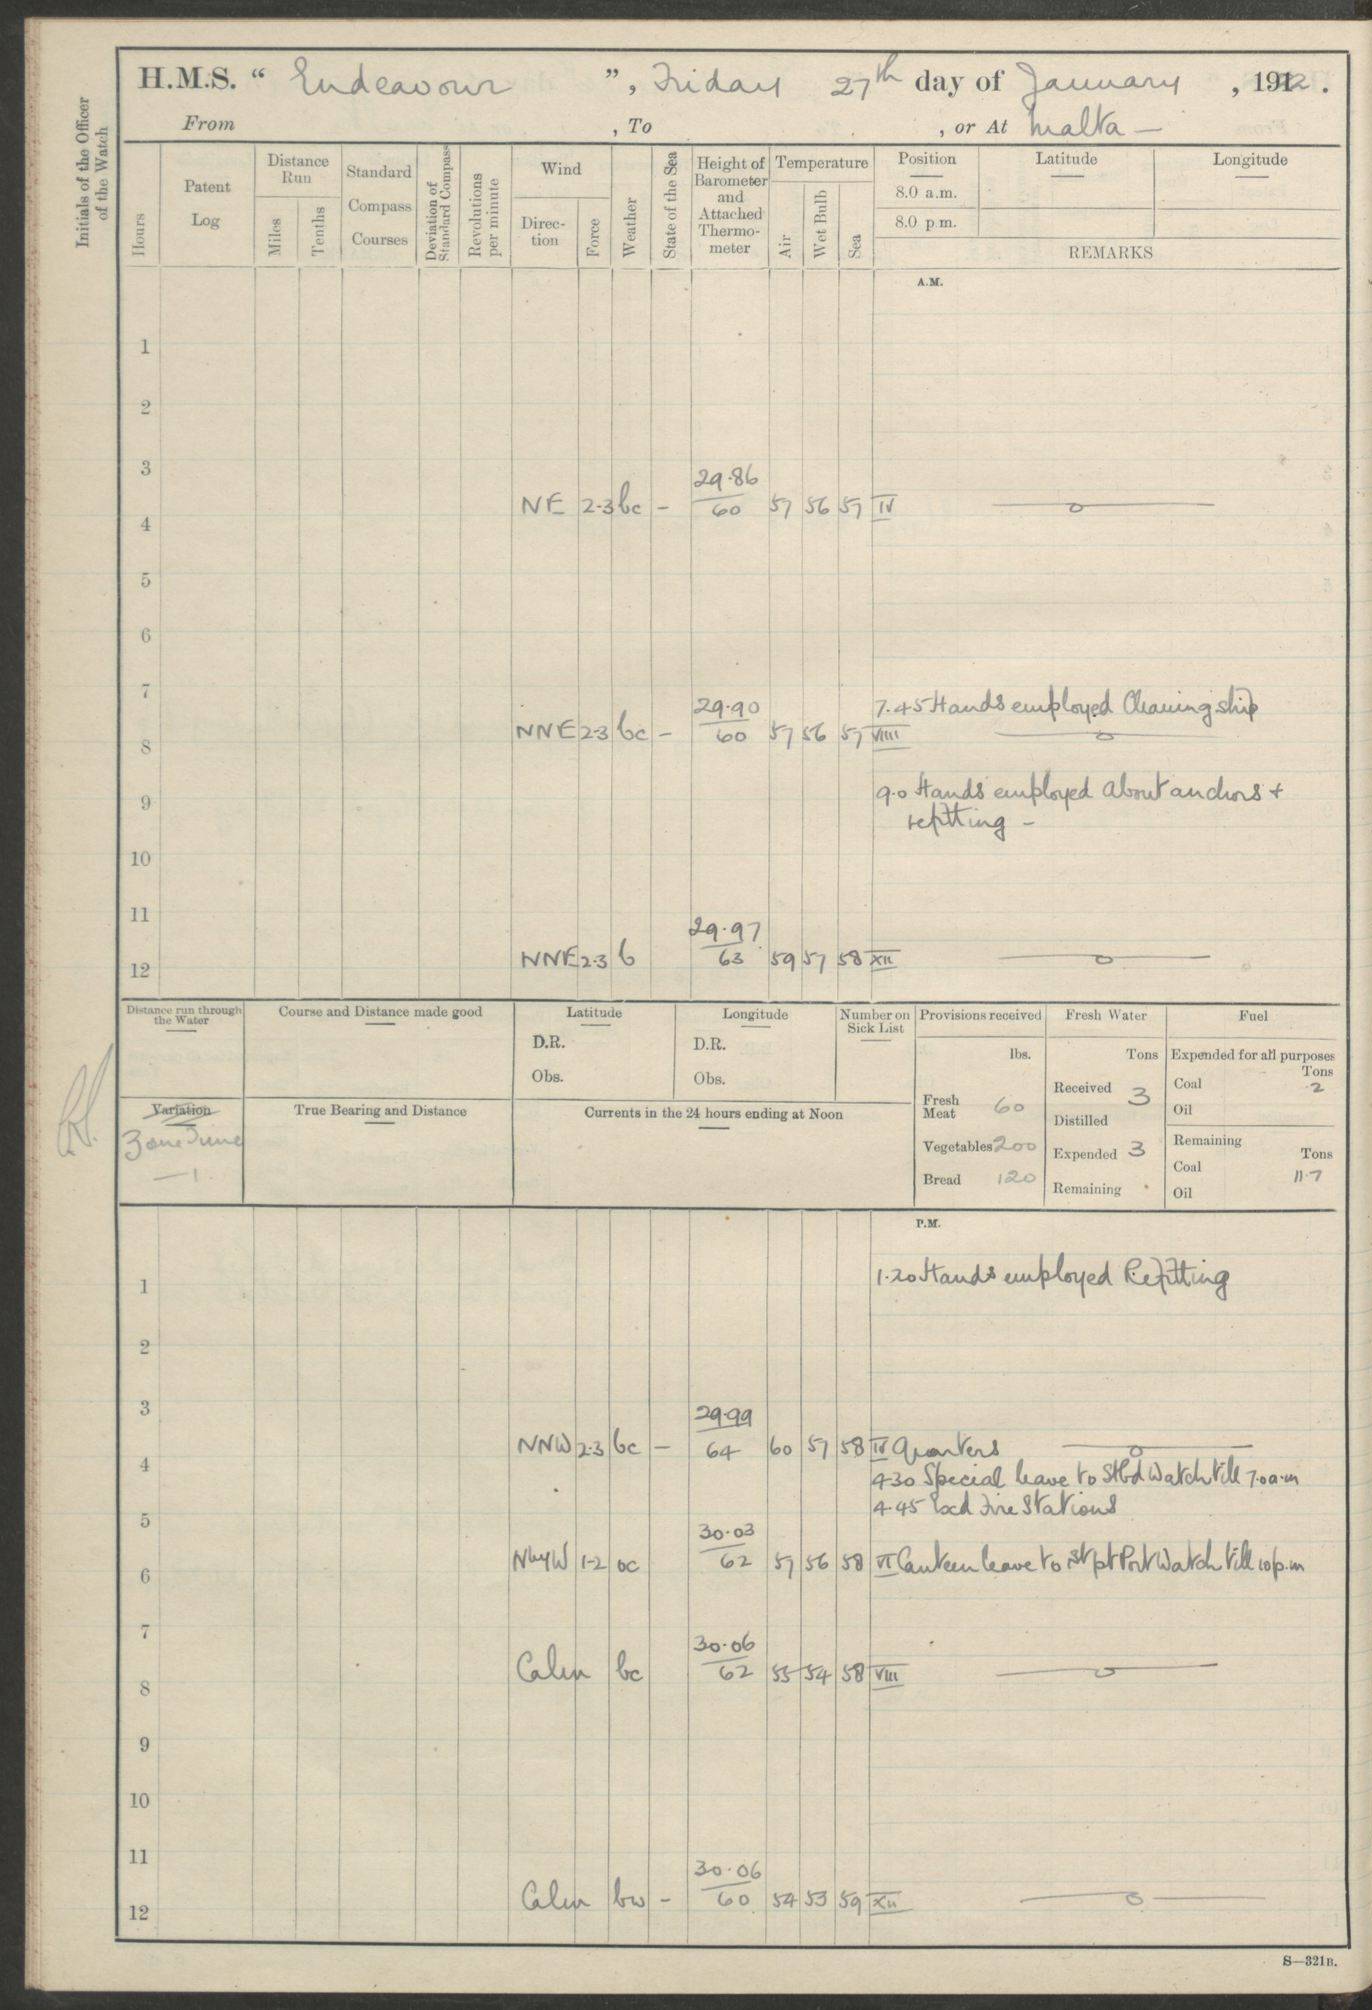 H.M.S. “ Endeavour ”, Friday 27th day of January , 1922.
From , To , or At Malta —
Initials of the Officer of the Watch
Hours
Patent Log
Distance Run
Miles
Tenths
Standard Compass Courses
Deviation of Standard Compass
Revolutions per minute
Wind
Direc-tion
Force
Weather
State of the Sea
Height of Barometer and Attached Thermo-meter
Temperature
Air
Wet Bulb
Sea
Position Latitude Longitude
8.0 a.m.
8.0 p.m.
REMARKS
A.M.
1
2
3
29.86
4 NE 2-3 bc – 60 57 56 57 IV
5
6
7
29.90 7.45 Hands employed Cleaning ship
8 NNE 2-3 bc – 60 57 56 57 VIII
9 9.0 Hands employed about anchors +
refitting –
10
11
29.97
12 NNE 2-3 b 63 59 57 58 XII
Distance run through the Water
Course and Distance made good
Latitude
D.R.
Obs.
Longitude
D.R.
Obs.
Number on Sick List
Provisions received
lbs.
Fresh Meat 60
Vegetables 200
Bread 120
Fresh Water
Tons
Received 3
Distilled
Expended 3
Remaining
Fuel
Expended for all purposes
Tons
Coal .2
Oil
Remaining
Tons
Coal 11.7
Oil
Variation
Zone Time
– 1
True Bearing and Distance
Currents in the 24 hours ending at Noon
P.M.
1 1.20 Hands employed Refitting
2
3
29.99
4 NNW 2-3 bc – 64 60 57 58 IV Quarters
4.30 Special leave to Stbd Watch till 7.0 a.m
4.45 Exd Fire Stations
5
30.03
6 NbyW 1-2 oc 62 57 56 58 VI Canteen leave to 1st pt Port Watch till 10 p.m
7
30.06
8 Calm bc 62 55 54 58 VIII
9
10
11
30.06
12 Calm bw – 60 54 53 59 XII
S—321B.